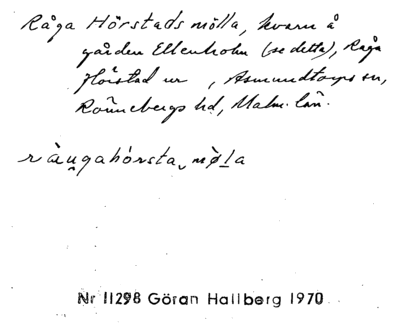 Råga Hörstads mölla, kvarn å
gården Ellenholm (se detta), Råga
Hörstad nr , Asmundtorps sn,
Rönnebergs hd, Malm. län.
ràu̯gahò́rsta mø̀la
Nr 11298 Göran Hallberg 1970